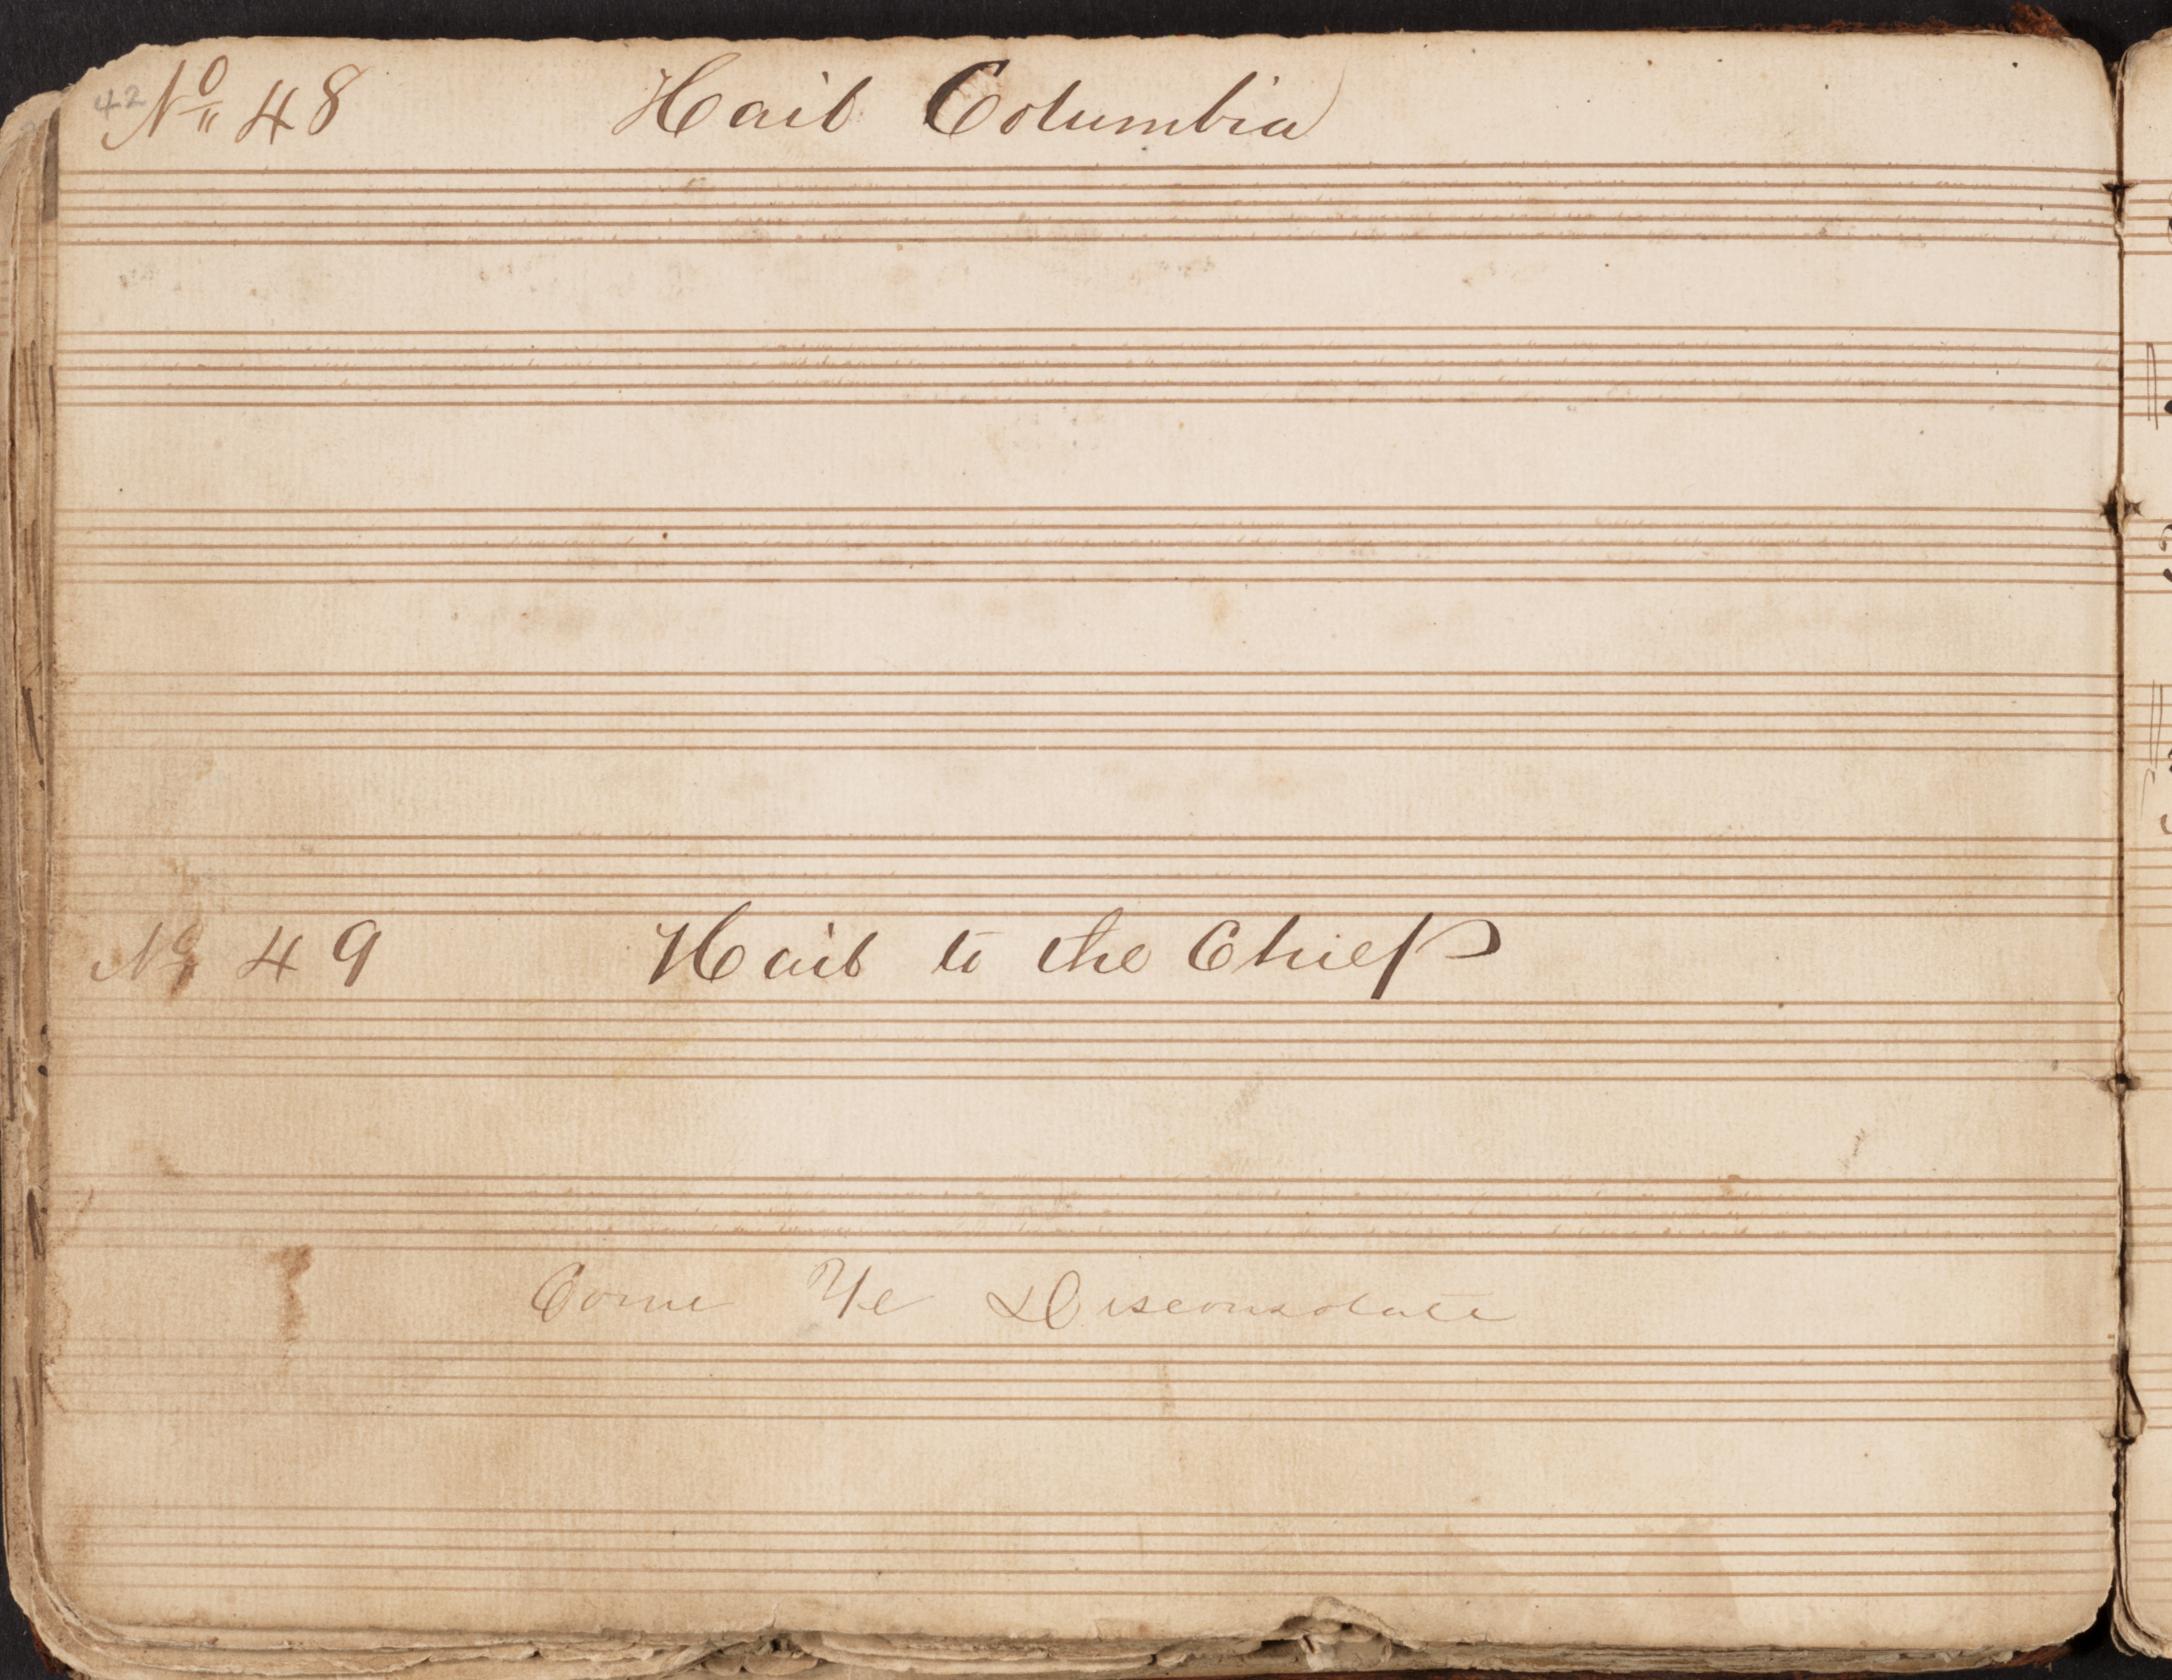 42 No 48 Hail Columbia
No 49 Hail to the Chief
Come Ye Disconsolate